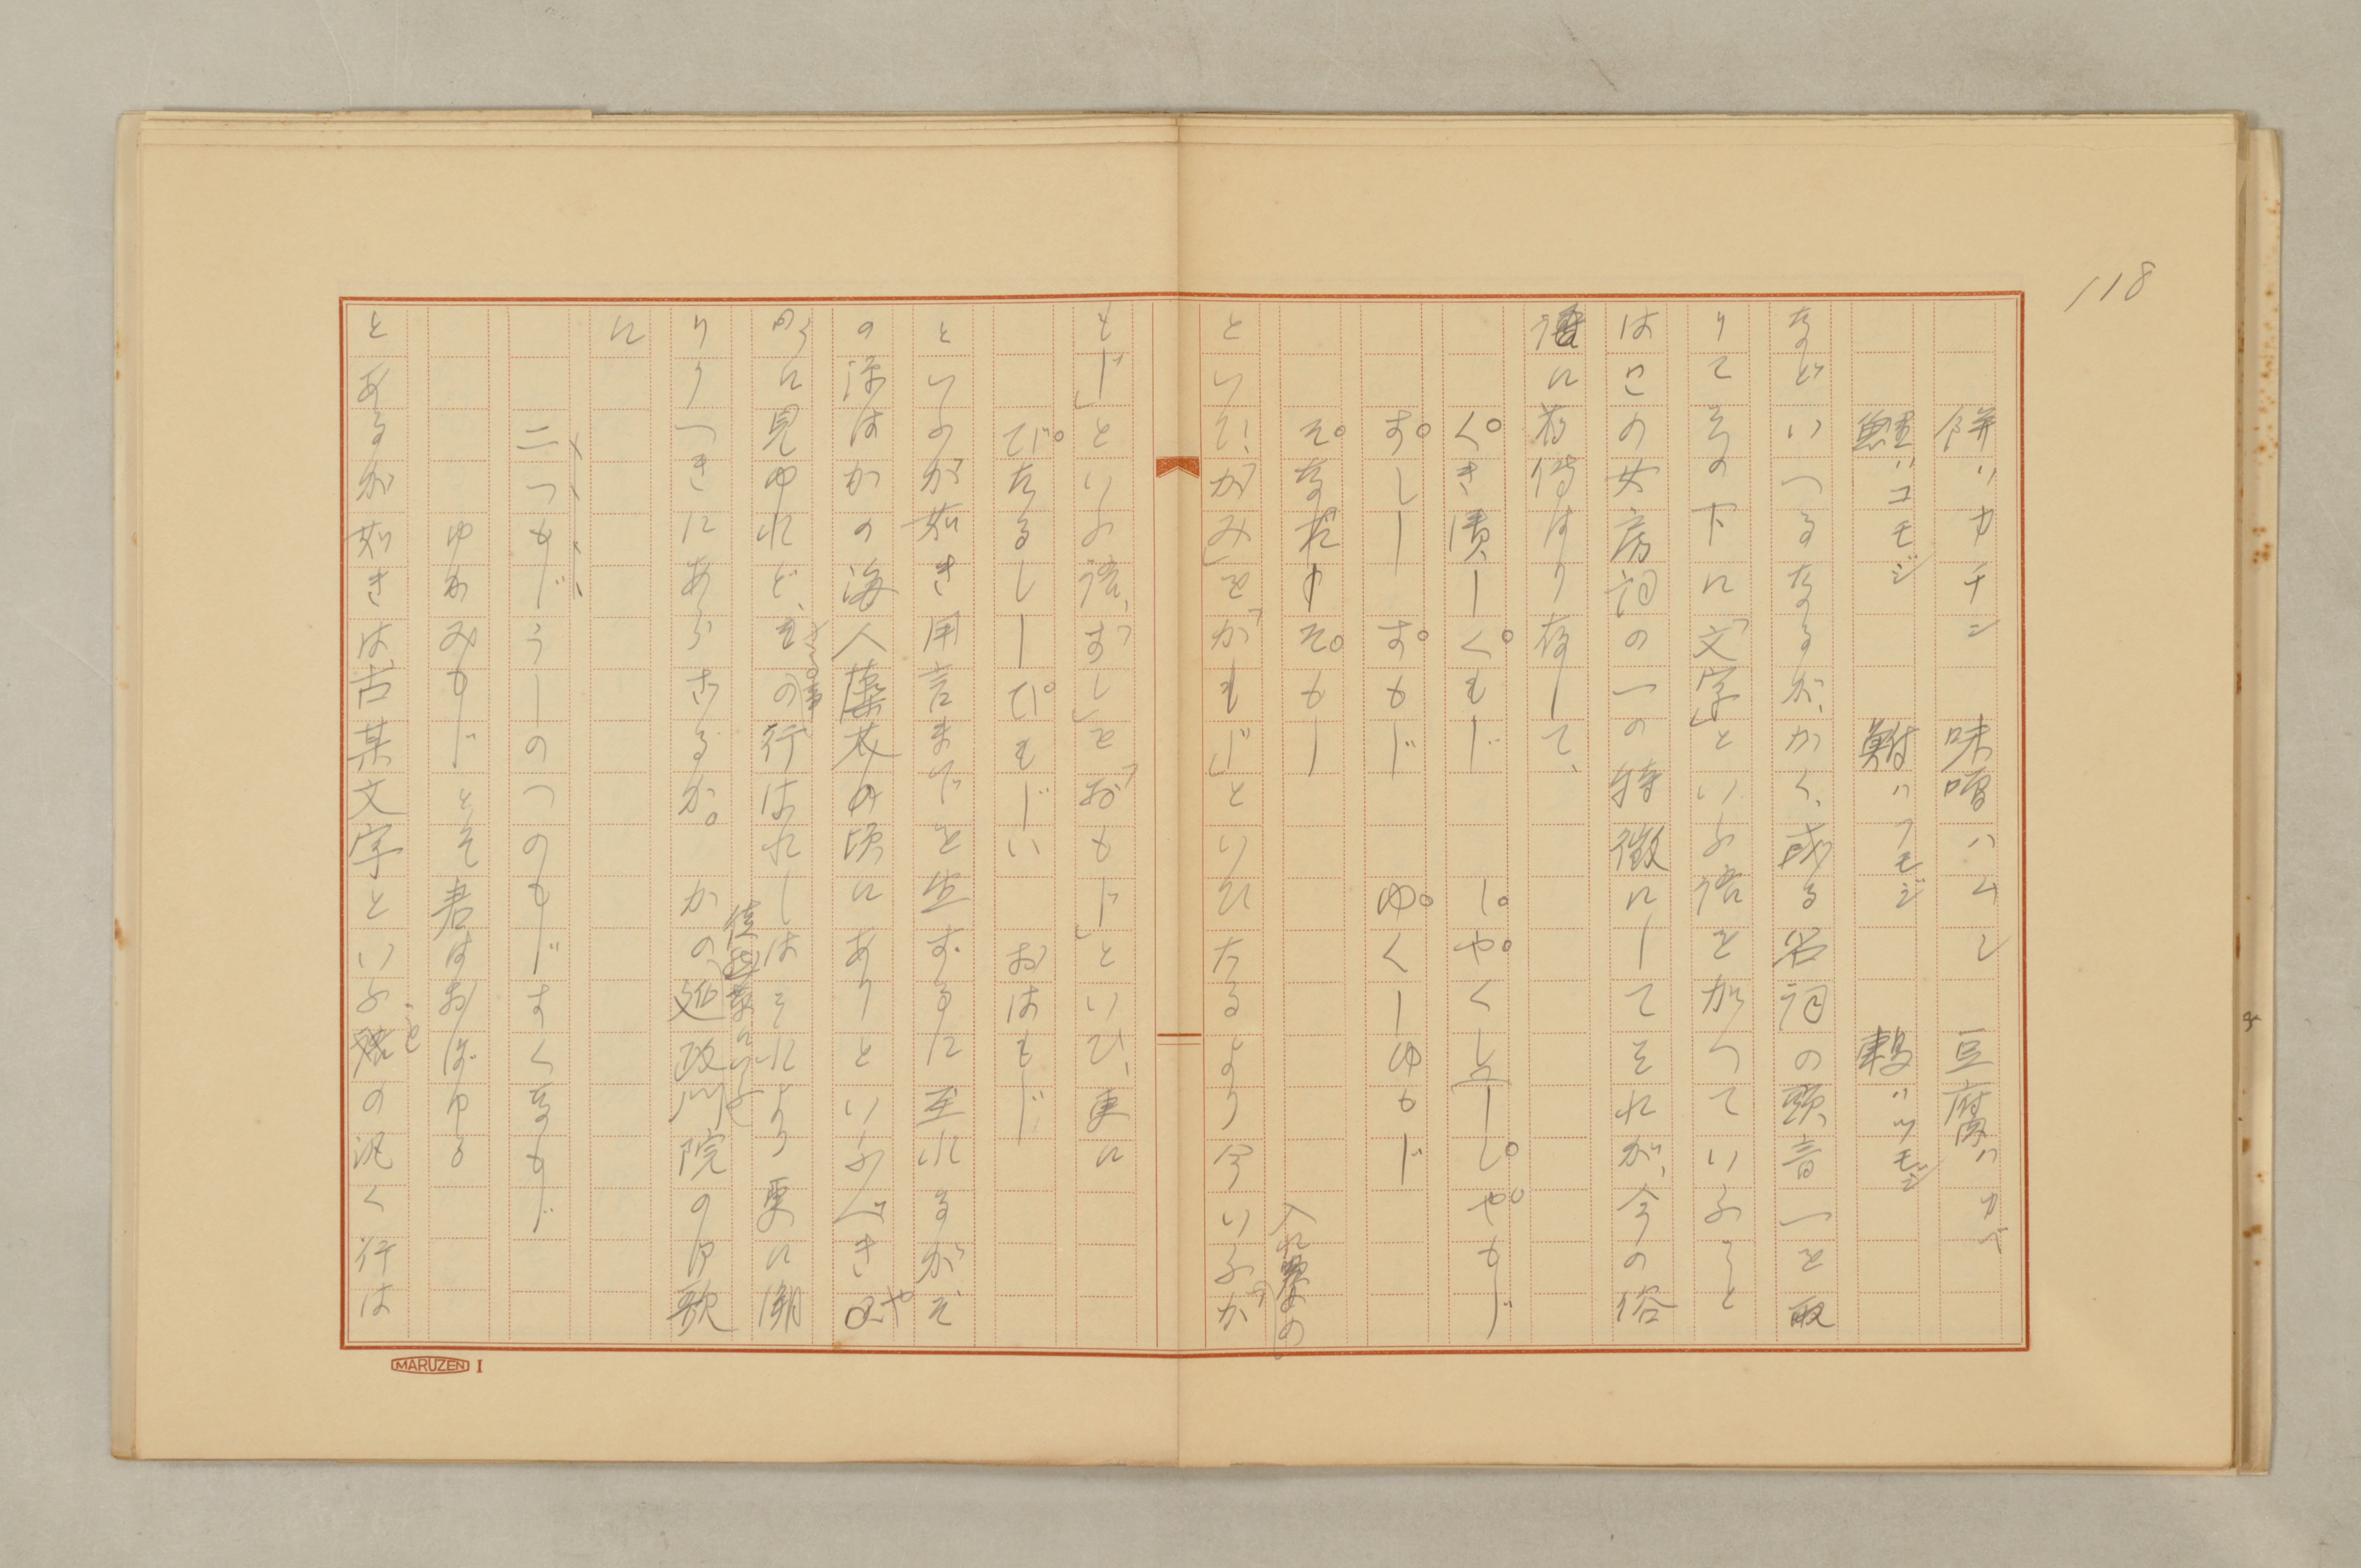 118
餅ハカチン　味噌ハムシ　豆腐ハカベ
鯉ハコモジ　鮒ハフモジ　鶫ハツモジ
などいへるなるが、かく、或る名詞の頭音一を取
りてその下に「文字」といふ語を加へていふこと
はこの女房詞の一の特徴にしてそれが、今の俗
語に
くき漬―くもじ　しやくし―しやもじ
すし―すもじ　ゆく―ゆもじ
そなた―そもじ
といひ、「かみ」を「かもじ」といひたるより今いふ「か
入れ髪の
もじ」といふ語、「すし」を「おもじ」といひ、更に
ひだるし―ひもじい　おはもじ
といふが如き用言までを生ずるに至れるがそ
の源はかの海人藻芥の頃にありといふべき や
うに見ゆれど、その行はれしはそれより更に溯
りうべきにあらざるか。かの延政門院の御歌
に
二つもじうしのつのもじすぐなもじ
ゆがみもじとぞ君はおぼゆる
とあるが如きは古某文字といふことの汎く行は
MARUZEN I